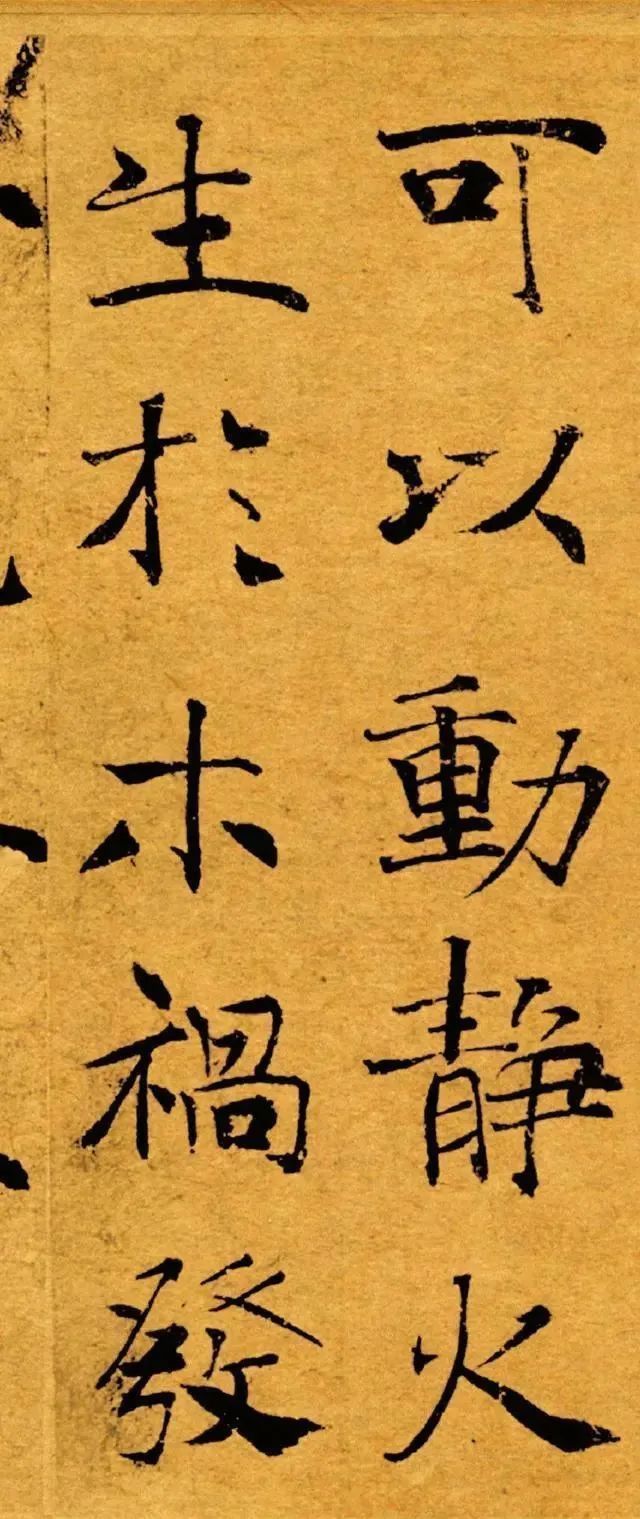 可以動靜火
生於木禍發